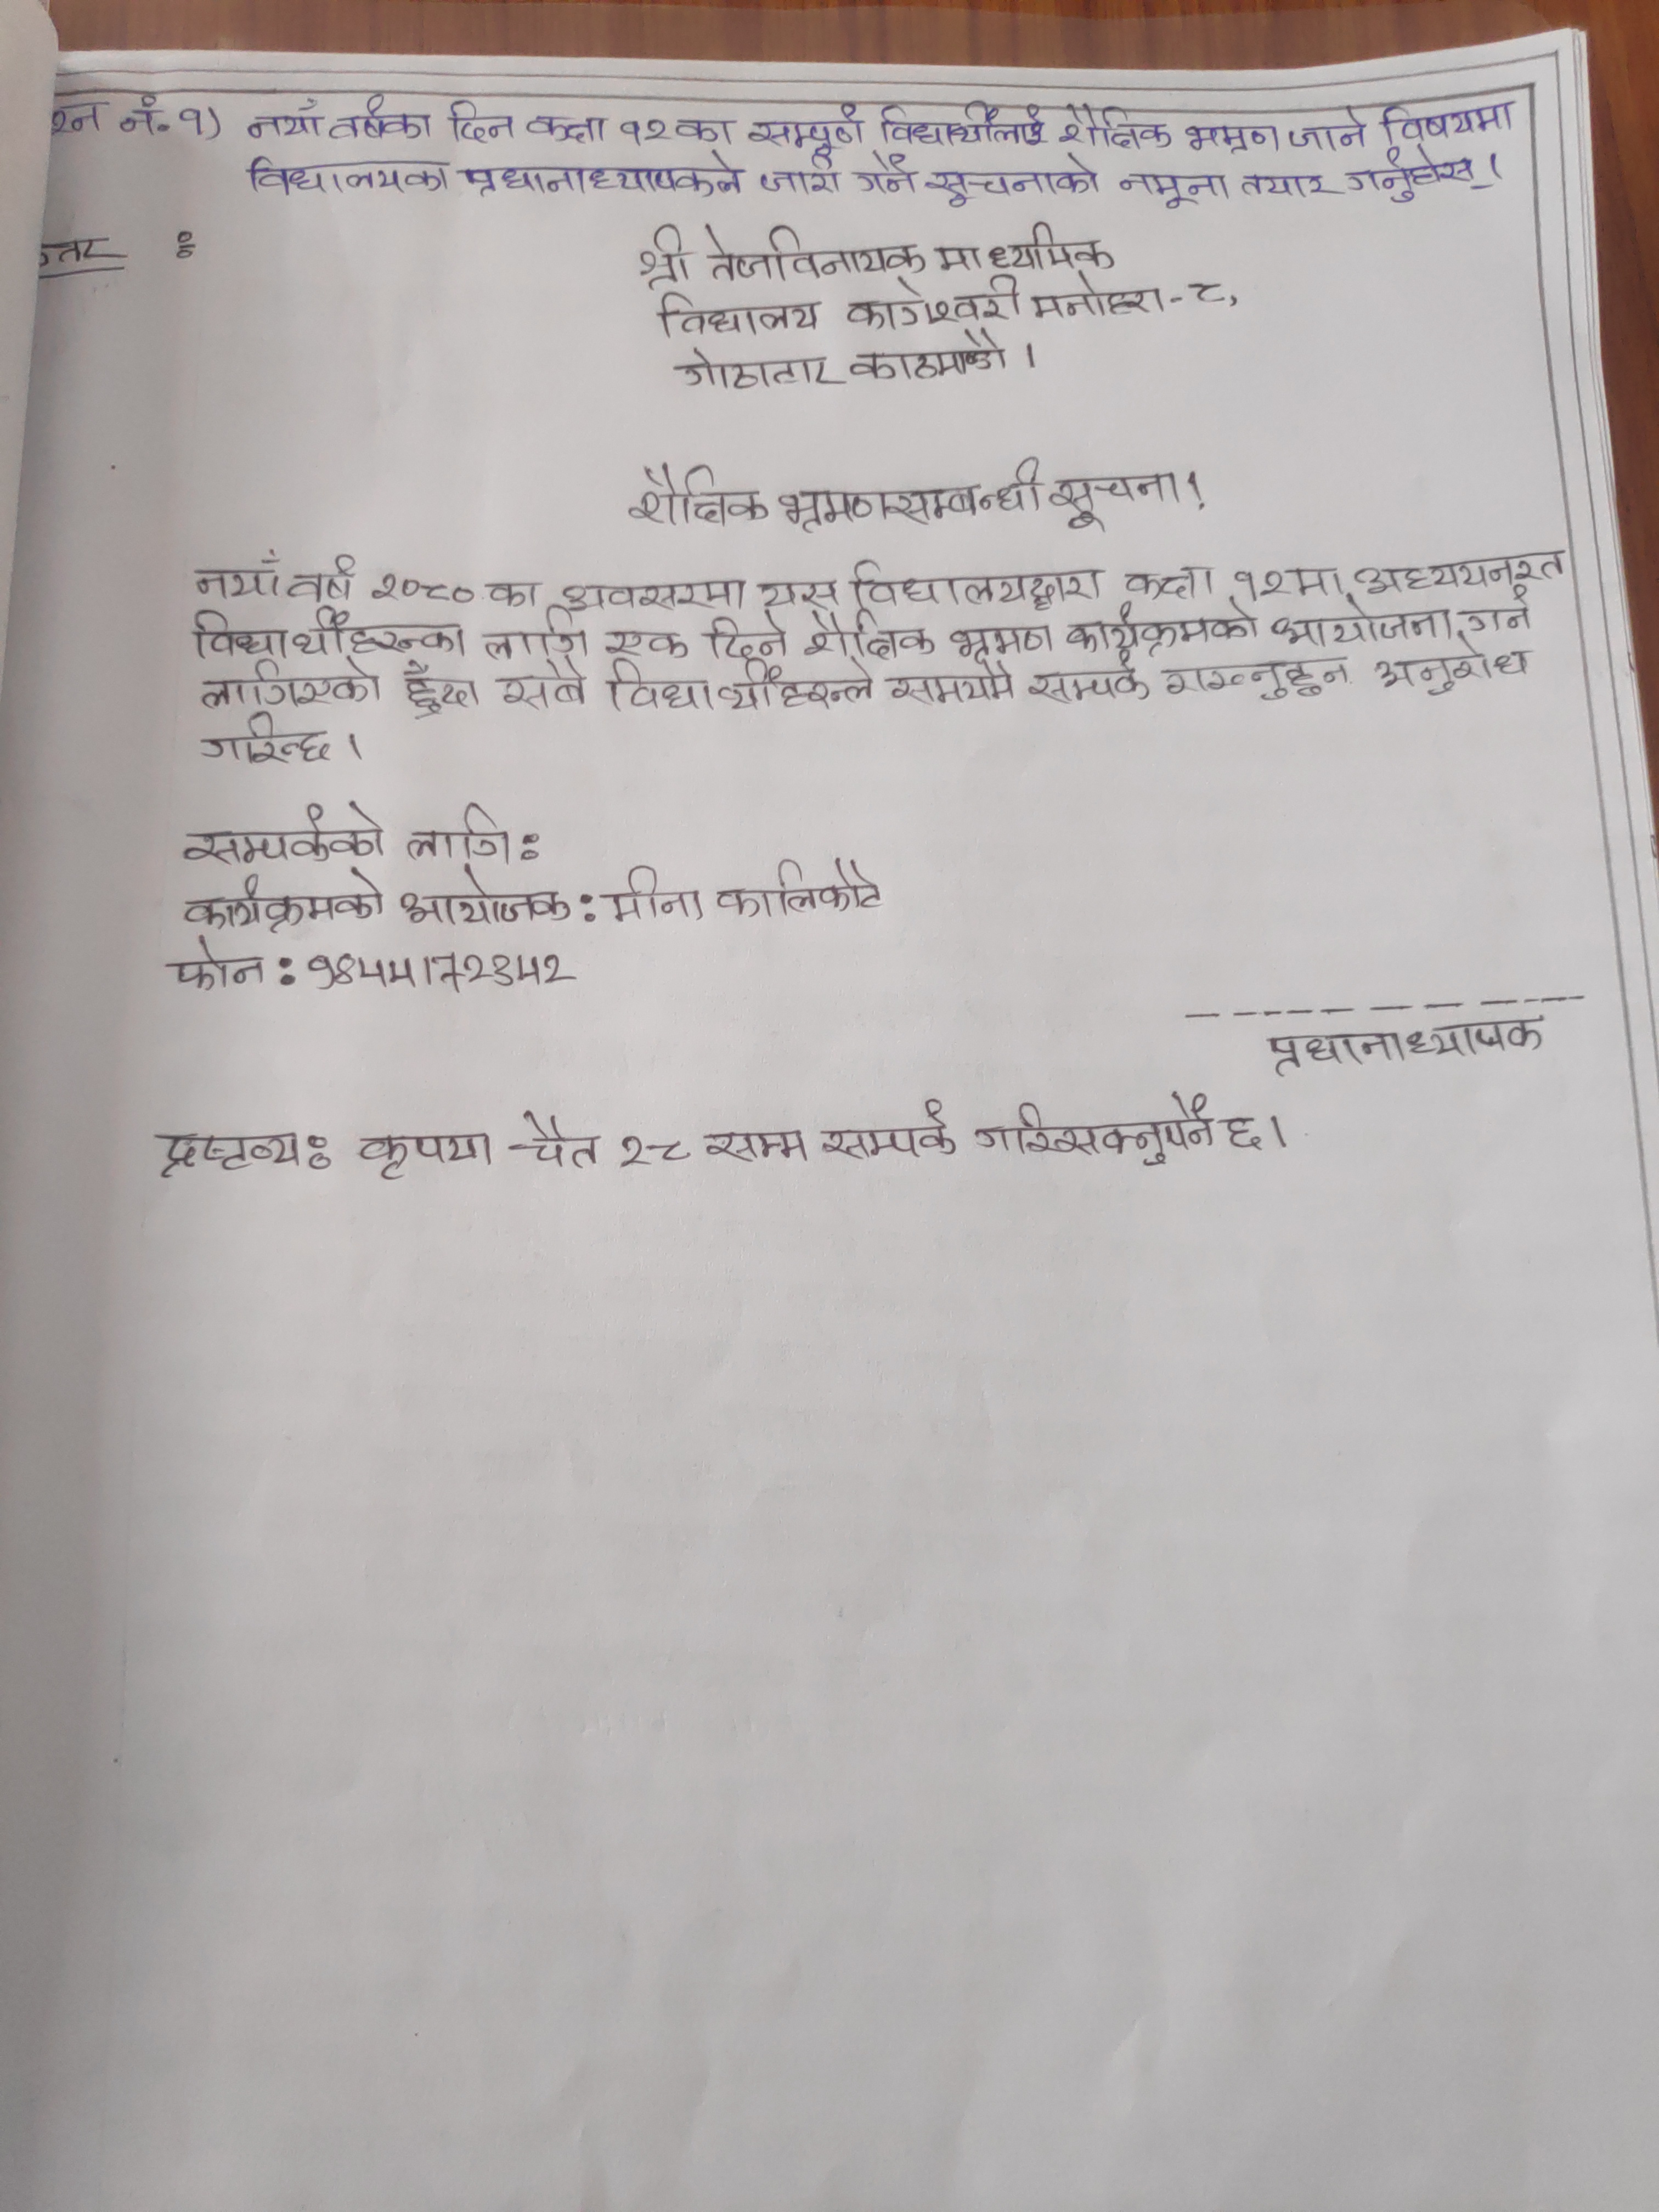 श्न नं. १) नयाँ वर्षका दिन कक्षा १२का सम्पूर्ण विद्यार्थीलाई शैक्षिक भम्रण जाने विषयमा
विद्यालयका प्रधानाध्यापकले जारी गर्ने सूचनाको नमूना तयार गर्नुहोस् ।
त्तर :
श्री तेजविनायक माध्यमिक
विद्यालय कागेश्वरी मनोहरा-८,
गोठाटार काठमाण्डौ ।
शैक्षिक भ्रमणसम्बन्धी सूचना !
नयाँ वर्ष २०८० का अवसरमा यस विद्यालयद्वारा कक्षा १२मा अध्ययनरत
विद्यार्थीहरूका लागि एक दिने शैक्षिक भ्रमण कार्यक्रमको आयोजना गर्न
लागिएको हुँदा सबै विद्यार्थीहरूले समयमै सम्पर्क राख्नुहुन अनुरोध
गरिन्छ ।
सम्पर्कको लागि :
कार्यक्रमको आयोजक : मीना कालिकोटे
फोन : 9844172342
प्रधानाध्यापक
द्रष्टव्य : कृपया चैत २८ सम्म सम्पर्क गरिसक्नुपर्ने छ ।